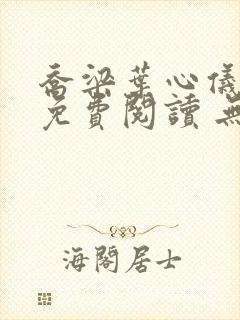 喬梁葉心儀
免費閱讀 無
海閣居士